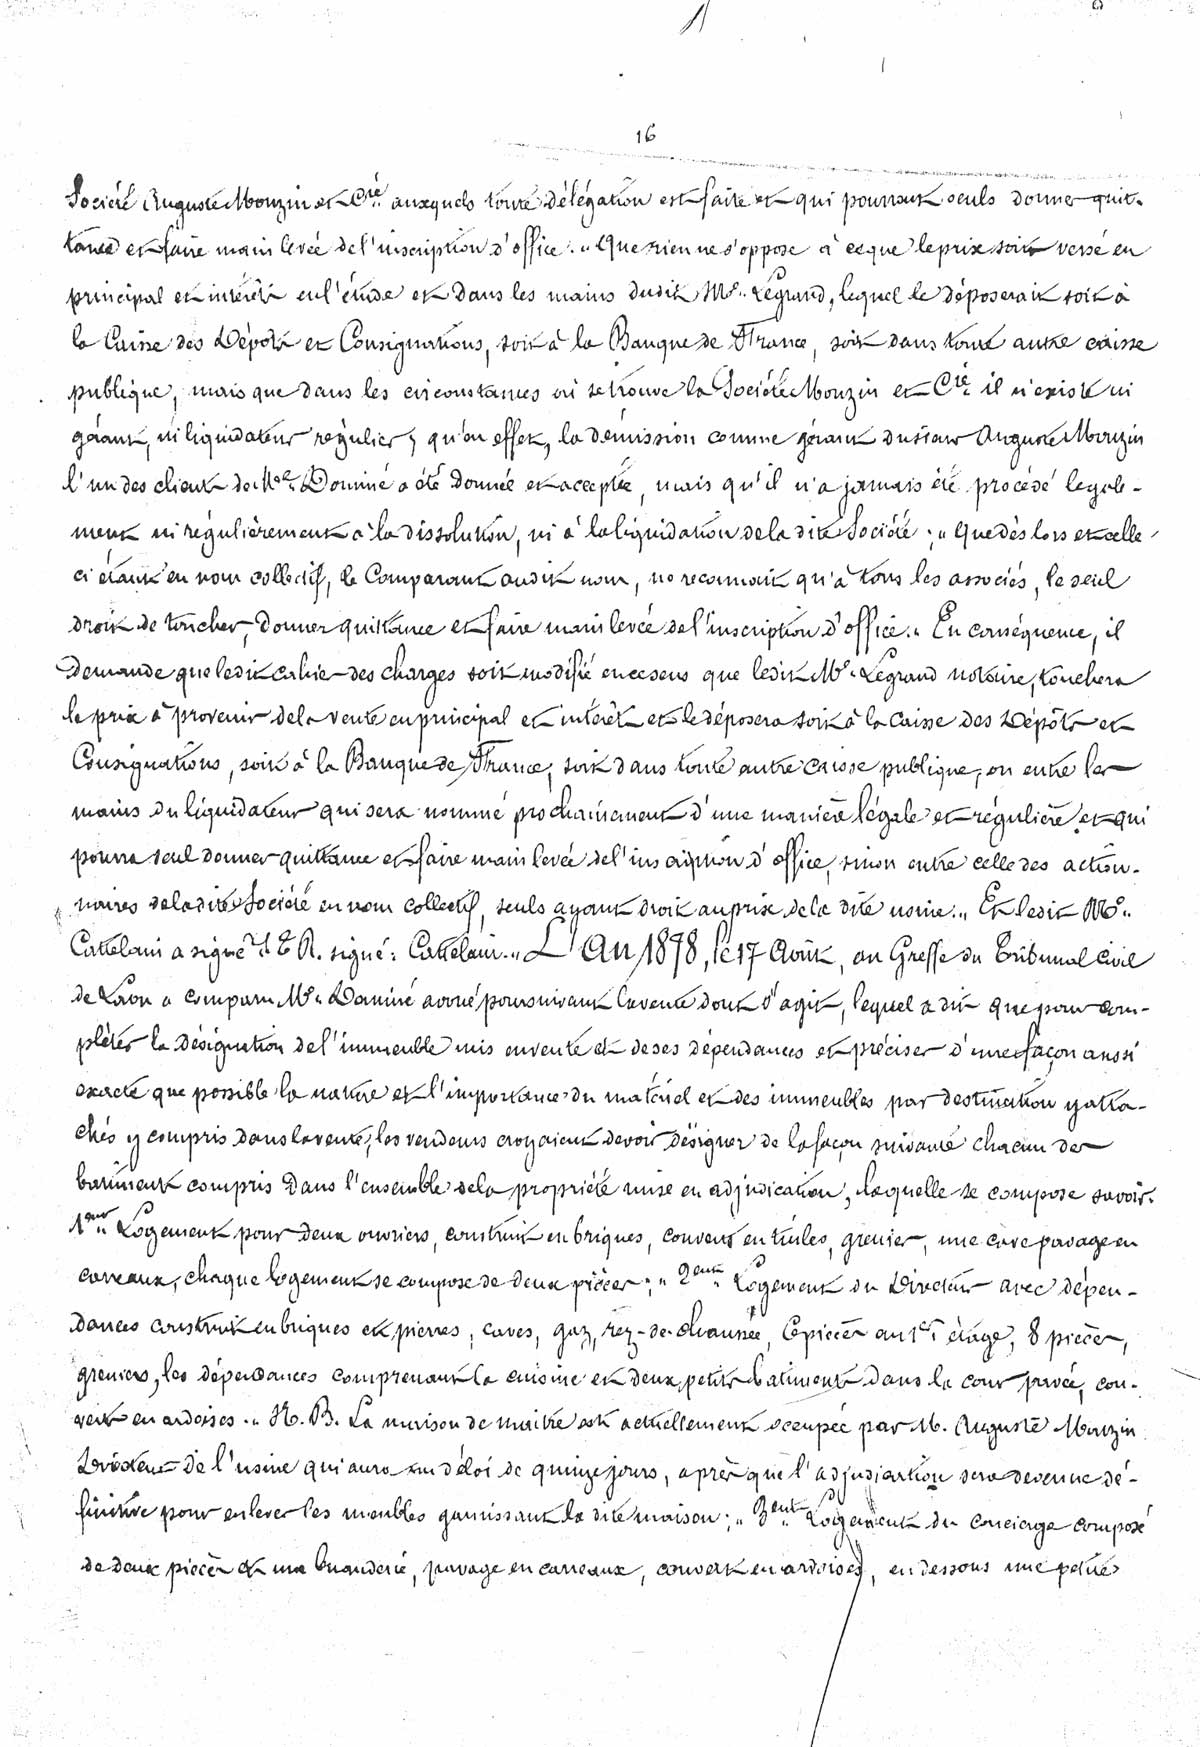 16
Société Auguste Mouzin et Cie auxquels toute délégation est faite et qui pourront seuls donner quit-
tance et faire main levée de l'inscription d'office. „ Que rien ne s'oppose à ce que le prix soit versé en
principal et intérêt en l'étude et dans les mains dudit Me. Legrand, lequel le déposerait soit à
la Caisse des Dépôts et Consignations, soit à la Banque de France, soit dans toute autre caisse
publique, mais que dans les circonstances où se trouve la Société Mouzin et Cie il n'existe ni
gérant, ni liquidateur régulier; qu'en effet, la démission comme gérant du sieur Auguste Mouzin
l'un des clients de Me. Dominé a été donnée et acceptée, mais qu'il n'a jamais été procédé légale-
ment ni régulièrement à la dissolution, ni à la liquidation de la dite Société; „ Que dès lors et celle
ci étant en nom collectif, le Comparant audit nom, ne reconnait qu'à tous les associés, le seul
droit de toucher, donner quittance et faire main levée de l'inscription d'office. „ En conséquence, il
demande que ledit cahier des charges soit modifié en ce sens que ledit Me. Legrand notaire, touchera
le prix à provenir de la vente en principal et intérêt et le déposera soit à la Caisse des Dépôts et
Consignations, soit à la Banque de France, soit dans toute autre caisse publique, ou entre les
mains du liquidateur qui sera nommé prochainement d'une manière légale et régulière et qui
pourra seul donner quittance et faire main levée de l'inscription d'office, sinon entre celle des action-
naires de la dite Société en nom collectif, seuls ayant droit au prix de la dite usine. „ Et ledit Me.
Cattelain a signé signé: Cattelain. „ L'An 1878, le 17 Août, au Greffe du Tribunal Civil
de Laon a comparu Me. Dominé avoué poursuivant la vente dont s'agit, lequel a dit que pour com-
pléter la désignation de l'immeuble mis en vente et de ses dépendances et préciser d'une façon aussi
exacte que possible la nature et l'importance du matériel et des immeubles par destination y atta-
chés y compris dans la vente, les vendeurs croyaient devoir désigner de la façon suivante chacun des
bâtiments compris dans l'ensemble de la propriété mise en adjudication, laquelle se compose savoir.
1ent. Logement pour deux ouvriers, construit en briques, couvert en tuiles, grenier, une cave pavage en
carreaux, chaque logement se compose de deux pièces; „ 2ent. Logement du Directeur avec dépen-
dances construit en briques et pierres, caves, gaz, rez-de-chaussée, 6 pièces au 1er étage, 8 pièces,
greniers, les dépendances comprenant la cuisine et deux petits batiments dans la cour pavée, cou-
vert en ardoises. „ N.B. La maison de maître est actuellement occupée par M. Auguste Mouzin
Directeur de l'usine qui aura un délai de quinze jours, après que l'adjudication sera devenue dé-
finitive pour enlever les meubles garnissant la dite maison; „ 3ent. Logement du concierge composé
de deux pièces et une buanderie, pavage en carreaux, couvert en ardoises, en dessous une petite